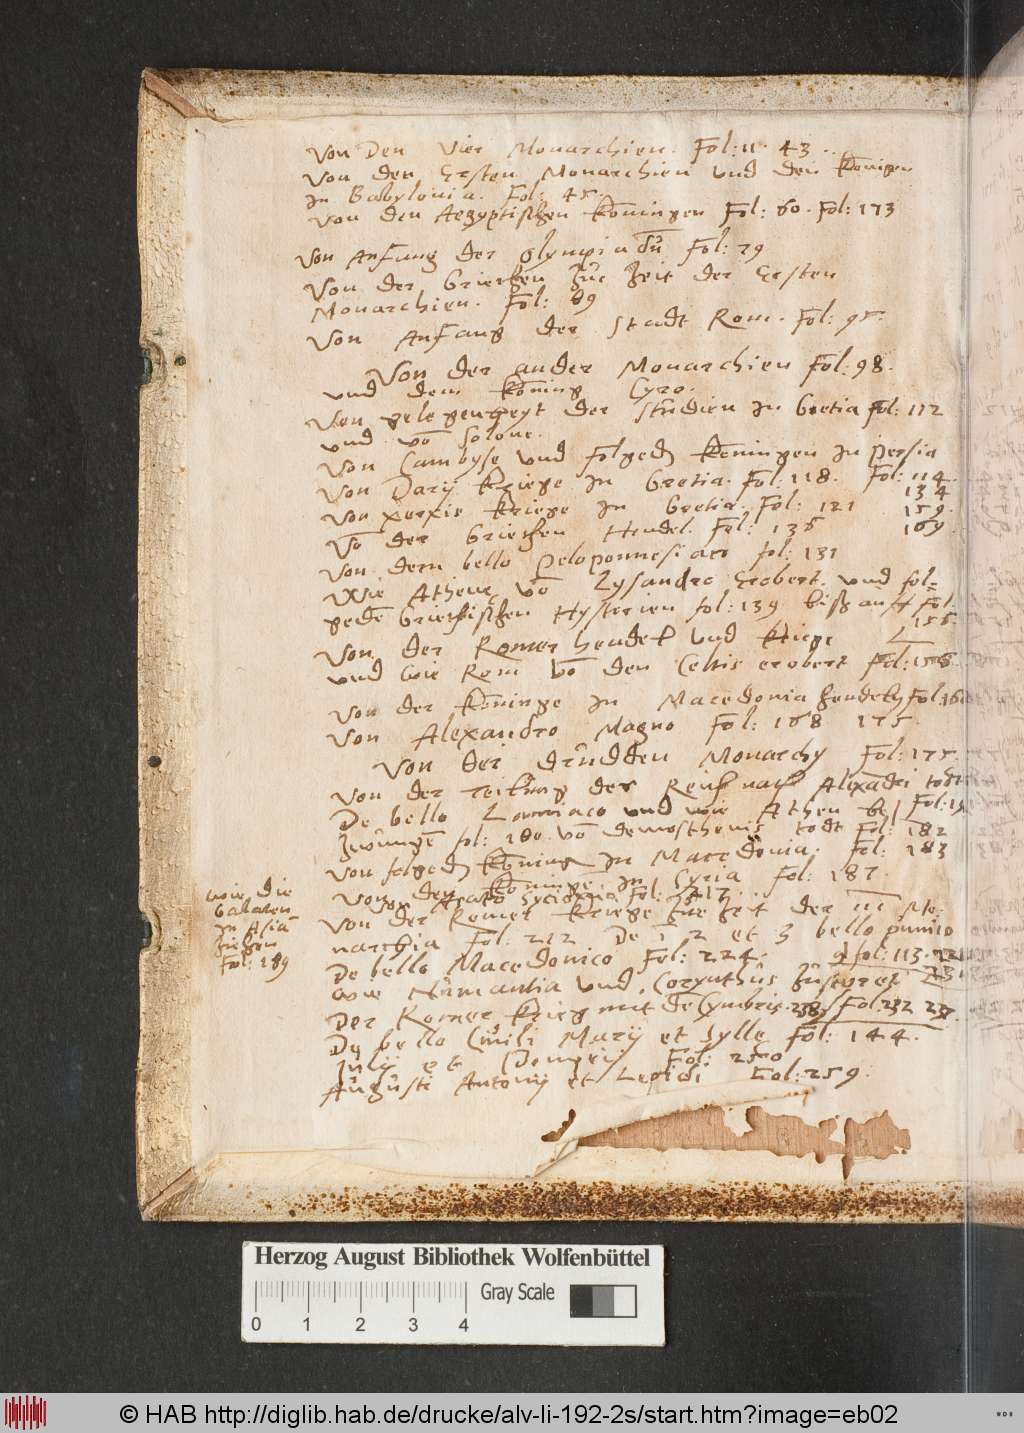 Von Den Vier Monarchien. Fol: 11. 43.
Von den Ersten Monarchien und den Königen
in Babylonia. Fol: 45.
Von den Aegyptischen Koningen Fol: 60. Fol: 173
Von Anfang der Olympiadū Fol: 79
Von der Griechen zur Zeit der Ersten
Monarchien. Fol: 89
Von Anfang der Stadt Rom. Fol: 95.
Von der ander Monarchien Fol: 98.
und dem Koning Cyro.
Von gelegenheyt der Studien in Gretia fol: 112
und vō Solone.
Von Cambyse und folgedn Koningen in Persia
Fol: 114
Von Darij Kriege in Gretia. Fol: 118.
134
Von Xerxis Kriege in Gretia. Fol: 121
159.
Vō der Griechen Hendel. Fol: 136
169.
Von dem bello Peloponnesiaco fol: 131
Wie Athenę vō Lysandro Erobert. und fol-
gedē Griechischen Hystorien fol: 139 biss auff Fol:
155.
Von der Romer hendel und Kriege
und wie Rom vō den Celtis erobert Fol: 156.
Von der Koninge in Macedonia hendeln Fol: 16
Von Alexandro Magno Fol: 168 175.
Von der drūdden Monarchy Fol: 175.
Von der Teilūng des Reichs nach Alexādri todt
De bello Lamiaco und wie Athen be Fol:
zwūngē fol: 180 vō demosthenis todt Fol: 182
Von folgedn Köning in Macedonia. Fol: 183
Von den Köninge in Syria Fol: 187.
Von Arato Sycionia Fol: 217.
wie die
Galaten
in Asiā
ziehen
Fol: 189
Von der Romer Kriege zur Zeit der III Mo-
narchia Fol: 212 De 1 2 et 3 bello punico
fol: 113.
De bello Macedonico Fol: 224.
Wie Nūmantia und Corynthūs zūstöret
Der Romer Krieg mit de Cymbris. 238 Fol: 232 237.
De bello Civili Marij et Syllę Fol: 144.
Julij et Pompeij Fol: 250
Aūgūsti Antonij et Lepidi Fol: 259.
Herzog August Bibliothek Wolfenbüttel
Gray Scale
0 1 2 3 4
© HAB http://diglib.hab.de/drucke/alv-li-192-2s/start.htm?image=eb02